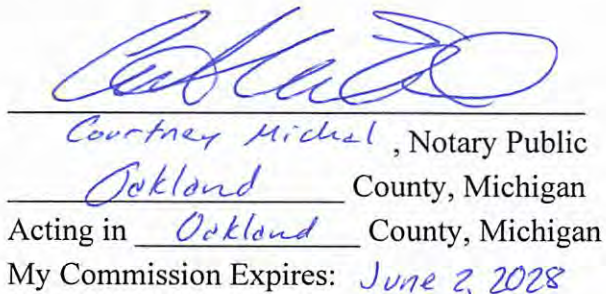 Courtney Michel, Notary Public
Oakland County, Michigan
Acting in Oakland County, Michigan
My Commission Expires: June 2, 2028